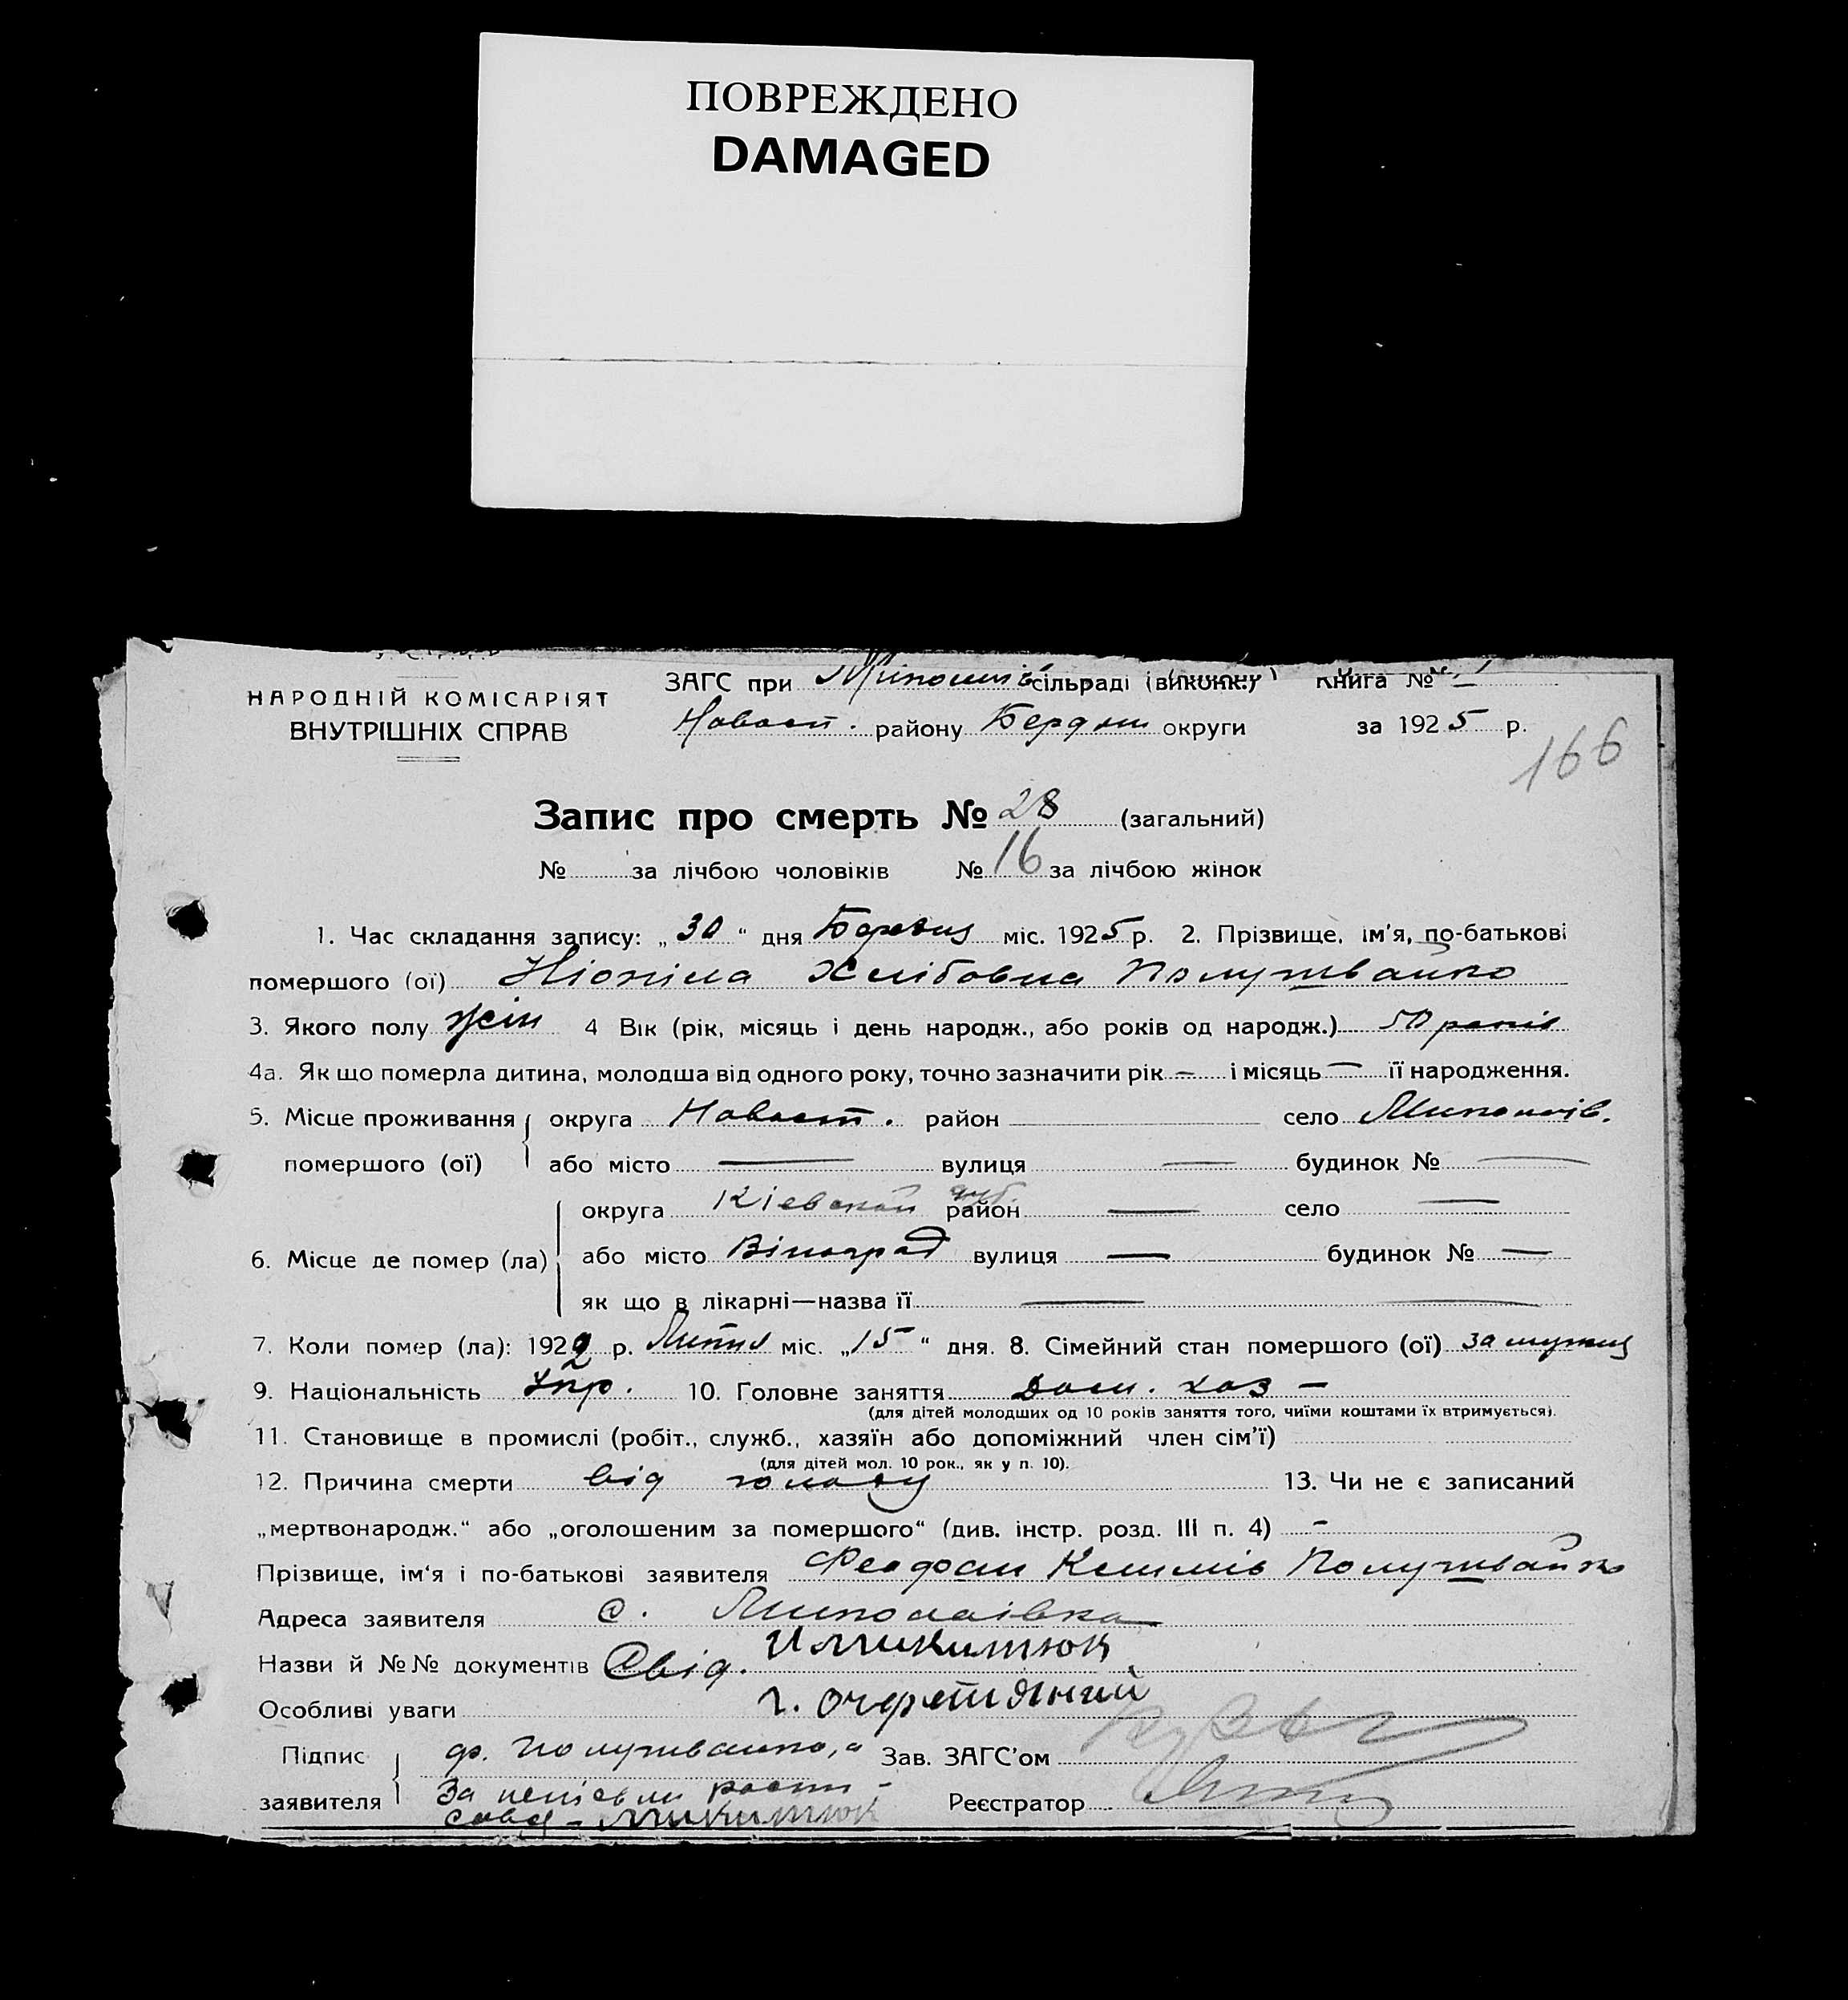 ПОВРЕЖДЕНО
DAMAGED
НАРОДНІЙ КОМІСАРІЯТ
ВНУТРІШНІХ СПРАВ
ЗАГС при сільраді (виконк.) Книга №
Новоси. району Бердян округи за 1925 р.
166
Запис про смерть № 28 (загальний)
№ за лічбою чоловіків № 16 за лічбою жінок
1. Час складання запису: „30“ дня Березня міс. 1925 р. 2. Прізвище, ім'я, по-батькові
помершого (ої) Хлібовна Полуштвайко
3. Якого полу жін 4 Вік (рік, місяць і день народж., або років од народж.) 50 років
4а. Як що померла дитина, молодша від одного року, точно зазначити рік — і місяць — її народження.
5. Місце проживання округа район село Миколаїв.
помершого (ої) або місто — вулиця — будинок № —
округа Кіевской губ. район — село —
6. Місце де помер (ла) або місто Віноград вулиця — будинок № —
як що в лікарні—назва її — —
7. Коли помер (ла): 1922 р. міс. „15“ дня. 8. Сімейний стан помершого (ої) замужня
9. Національність Укр. 10. Головне заняття Дом. хаз —
(для дітей молодших од 10 років заняття того, чиїми коштами їх втримується).
11. Становище в промислі (робіт., служб., хазяїн або допоміжний член сім'ї)
(для дітей мол. 10 рок., як у п. 10).
12. Причина смерти від голоду 13. Чи не є записаний
„мертвонародж.“ або „оголошеним за помершого“ (див. інстр. розд. III п. 4) -
Прізвище, ім'я і по-батькові заявителя Феофан
Адреса заявителя с. Миколаівка
Назви й №№ документів Свід. И Микитюк
Особливі уваги г.
Підпис ф. Зав. ЗАГС'ом
заявителя За Реєстратор
Микитюк